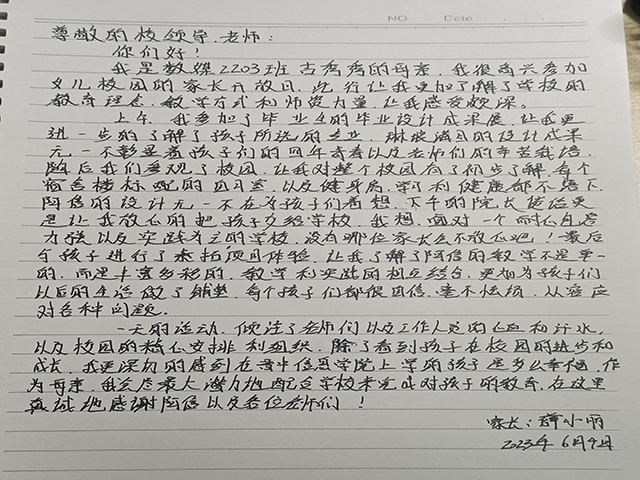 NO Date
尊敬的校领导、老师:
你们好!
我是数媒2203班吉秀秀的母亲,我很高兴参加
女儿校园的家长开放日,此行让我更加了解了学校的
教育理念、教学方式和师资力量,让我感受颇深。
上午,我参加了毕业生的毕业设计成果展,让我更
进一步的了解了孩子所选的专业,琳琅满目的设计成果
无一不彰显着孩子们的四年青春以及老师们的辛苦栽培,
随后我们参观了校园,让我对整个校园有了初步了解,每个
宿舍楼标配的自习室,以及健身房,学习和健康都不落下
阿信的设计无一不在为孩子们着想,下午的院长传话更
是让我放心的把孩子交给学校,我想,面对一个耐心包容
为强以及实践为主的学校,没有哪位家长会不放心吧!最后
个孩子进行了素拓项目体验,让我了解了阿信的教学不是单一
的,而是丰富多彩的,教学和实践的相互结合,更加为孩子们
以后的生活做了铺垫,每个孩子们都很自信,毫不怯场,从容应
对各种问题。
一天的活动,倾注了老师们以及工作人员的心血和汗水,
以及校园的精心安排和组织,除了看到孩子在校园的进步和
成长,我更深切的感到在晋中信息学院上学的孩子是多么幸福,作
为母亲,我会尽最大潜力地配合学校来完成对孩子的教育,在这里
真诚地感谢阿信以及各位老师们!
家长:薛小丽
2023年6月9日